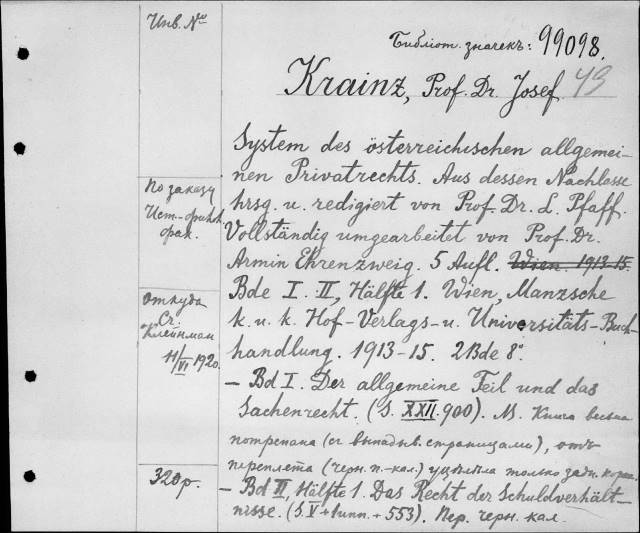 Инв. №
Библіот. значекъ: 99098.
Krainz, Prof. Dr. Josef 49
System des österreichischen allgemei-
nen Privatrechts. Aus dessen Nachlasse
hrsg. u. redigiert von Prof. Dr. L. Pfaff.
Vollständig umgearbeitet von Prof. Dr.
Armin Ehrenzweig. 5 Aufl. Wien. 1913-15.
Bde I. II, Hälfte 1. Wien, Manzsche
k. u. k. Hof-Verlags- u. Universitäts-Buch-
handlung. 1913-15. 2 Bde 8°.
- Bd I. Der allgemeine Teil und das
Sachenrecht. (S. XXII. 900). Книга весьма
потрепана (съ выпадыв. страницами), отъ
переплета (черн. п.-кал.) уцѣлѣла только задн. корка.
- Bd II, Hälfte 1. Das Recht der Schuldverhält-
nisse. (S. V + 1 unn. + 553). Пер. черн. кал.
По заказу
Ист.-
фак.
Откуда
Ст.
Клейнман
11/VI 1920.
320 р.